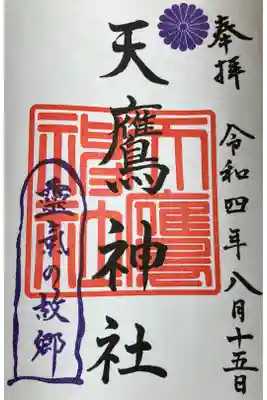 奉拝
令和四年八月十五日
天鷹神社
天鷹神社
靈気の故郷